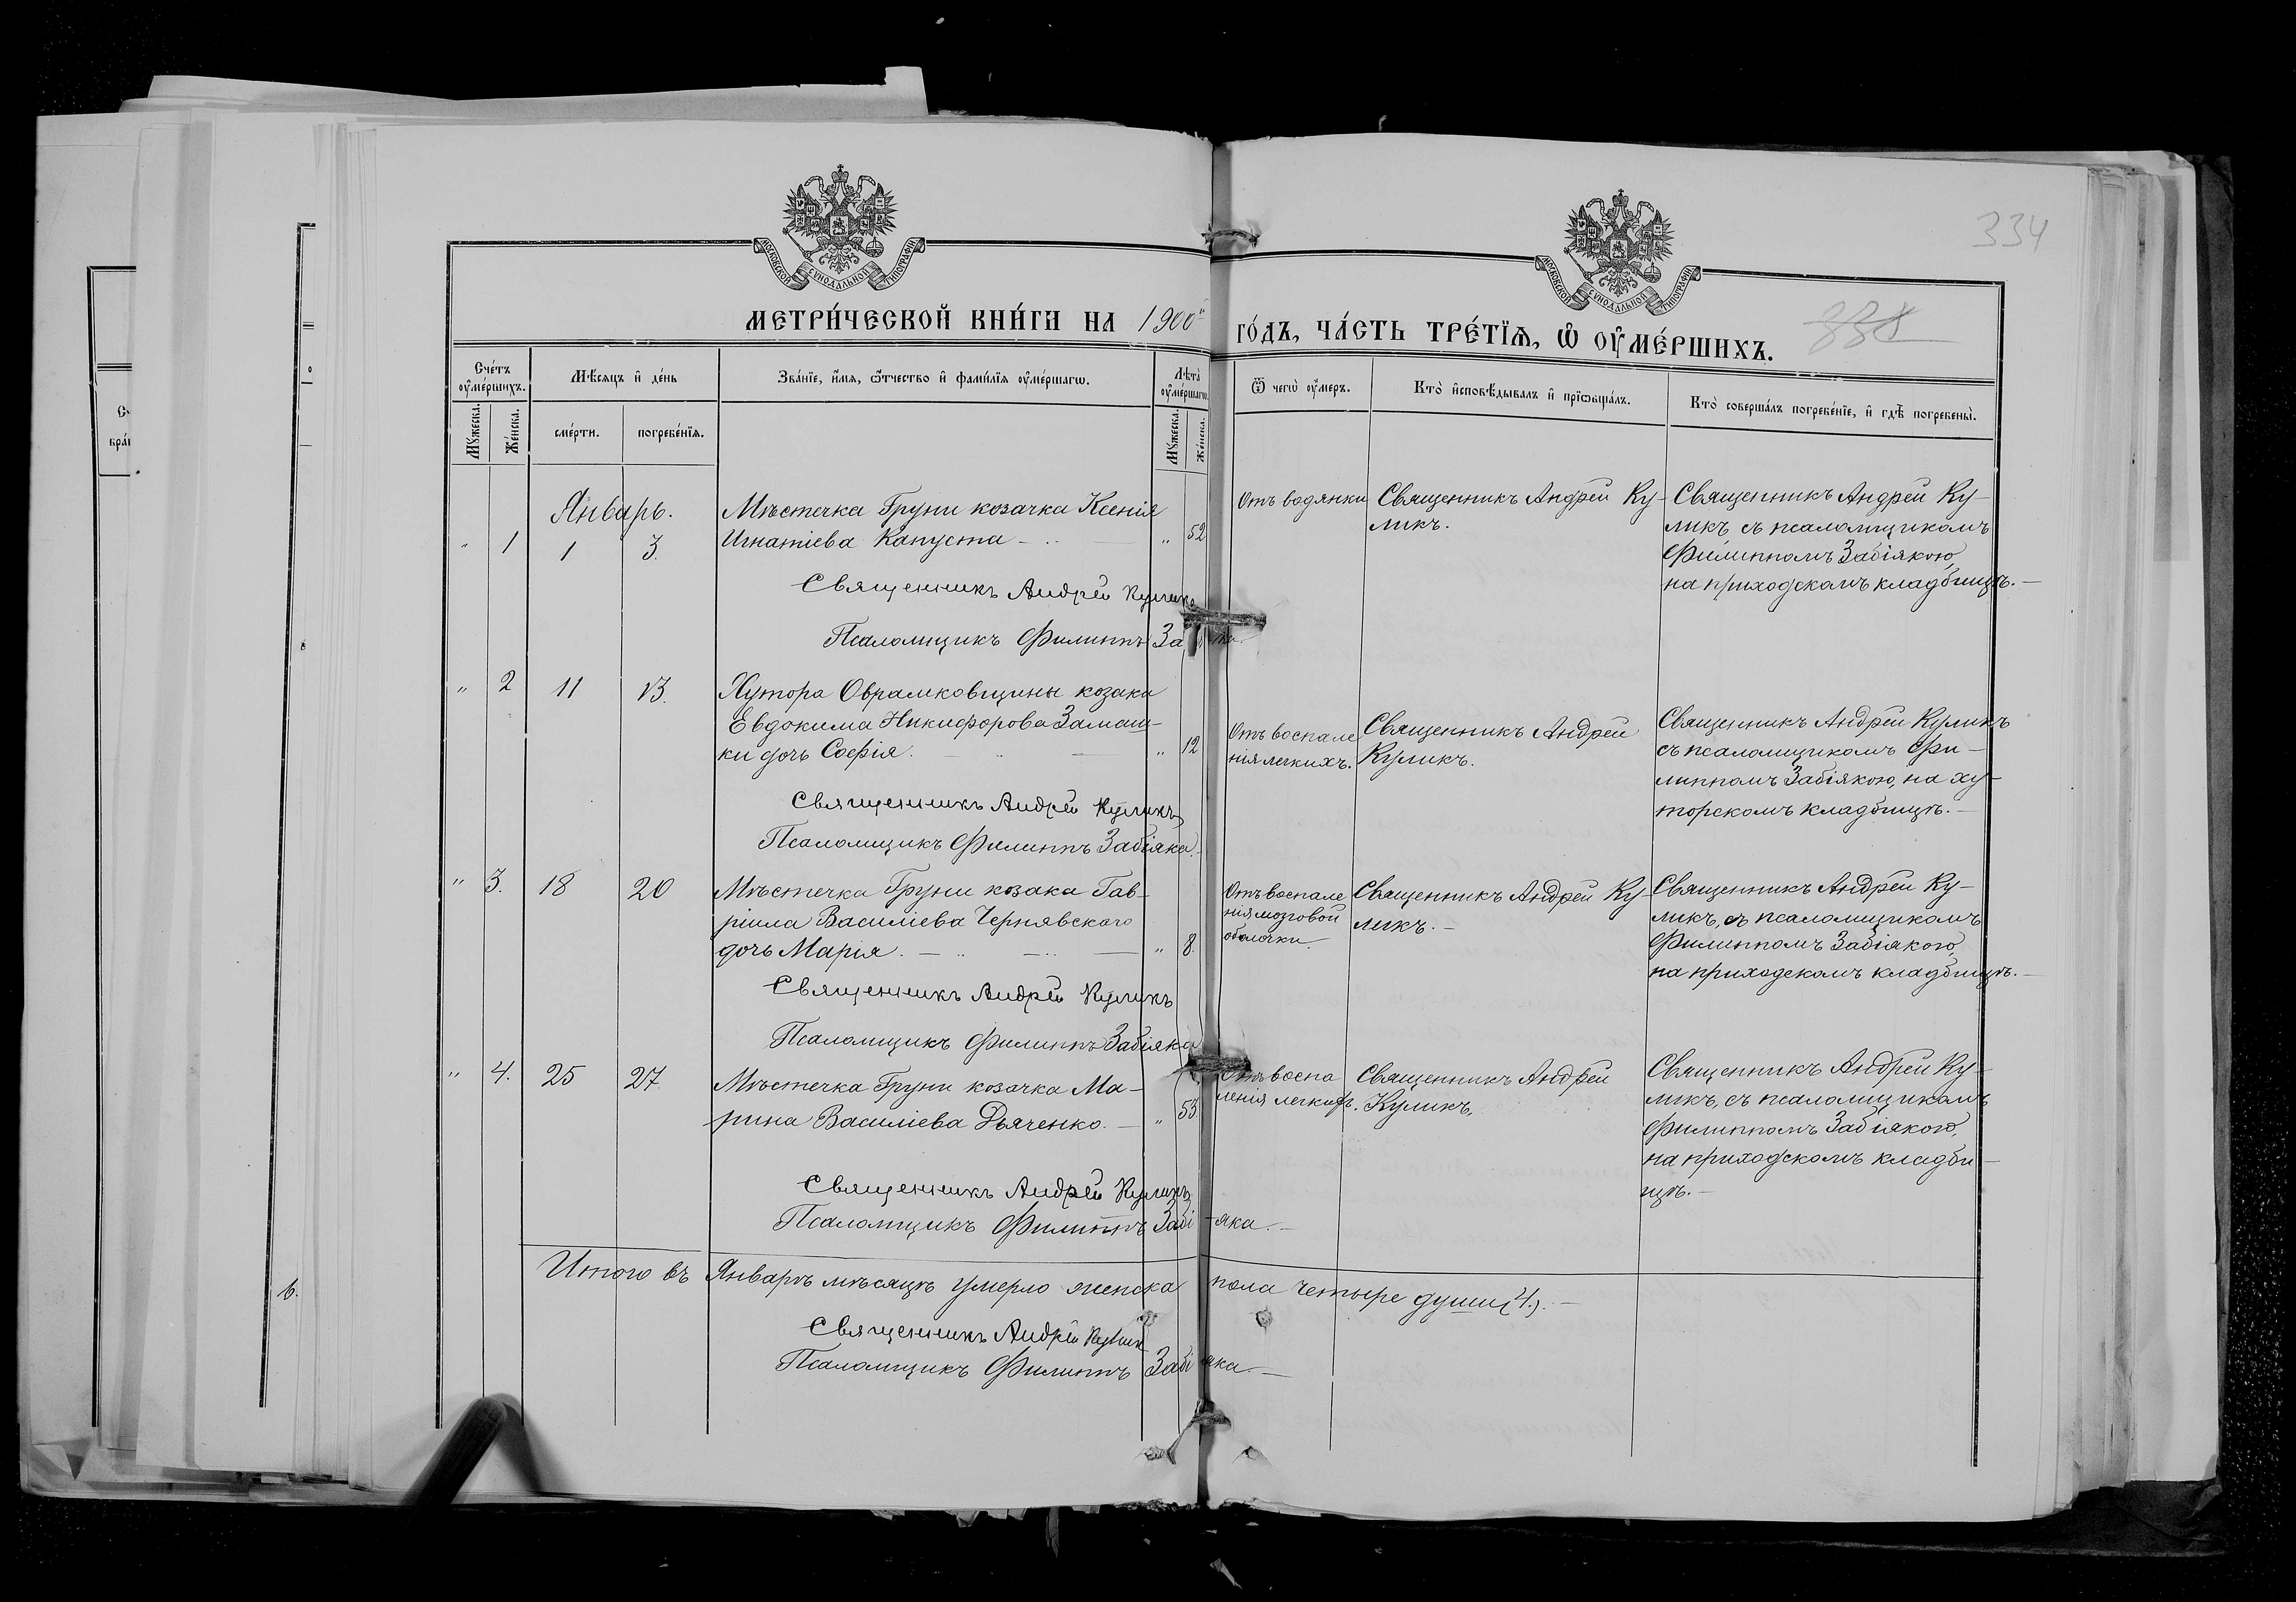 334
МОСКОВСКОЙ СУНОДАЛЬНОЙ ТИПОГРАФІИ
МОСКОВСКОЙ СУНОДАЛЬНОЙ ТИПОГРАФІИ
МЕТРИ́ЧЕСКОЙ КНИ́ГИ НА 1900й ГО́ДЪ, ЧА́СТЬ ТРЕ́ТІѦ, Ѡ҆ ОУ҆МЕ́РШИХЪ.
Сче́тъ оу҆ме́ршихъ.
Мꙋ́жеска.
Же́нска.
Мѣ́сяцъ и҆ де́нь
сме́рти.
погребе́нїѧ.
Зва́нїе, и҆́мѧ, ѻ҆́тчество и҆ фами́лїѧ оу҆ме́ршагѡ.
Лѣ́та оу҆ме́ршагѡ.
Мꙋ́жеска.
Же́нска.
Ѿ чегѡ̀ оу҆́меръ.
Кто̀ и҆сповѣ́дывалъ и҆ прїѡбща́лъ.
Кто̀ соверша́лъ погребе́нїе, и҆ гдѣ̀ погребены̀.
Январь.
" 1 1 3.
Мѣстечка Груни козачка Ксенія
Игнатіева Капуста - " 52
Отъ водянки
Священникъ Андрей Ку-
ликъ.
Священникъ Андрей Ку-
ликъ, съ псаломщикомъ
Филиппомъ Забіякою,
на приходскомъ кладбищѣ. -
Священникъ Андрей Куликъ
Псаломщикъ Филиппъ За
" 2 11 13.
Хутора Обрамковщины козака
Евдокима Никифорова Замаш-
ки дочь Софія. " 12
Отъ воспале
нія легкихъ.
Священникъ Андрей
Куликъ.
Священникъ Андрей Куликъ
съ псаломщикомъ Фи-
липпомъ Забіякою, на ху-
торскомъ кладбищѣ. -
Священникъ Андрей Куликъ
Псаломщикъ Филиппъ Забіяка.
" 3. 18 20
Мѣстечка Груни козака Гав-
ріила Василіева Чернявского
дочь Марія. " 8.
Отъ воспале
нія мозговой
оболочки.
Священникъ Андрей Ку-
ликъ. -
Священникъ Андрей Ку-
ликъ, съ псаломщикомъ
Филиппомъ Забіякою,
на приходскомъ кладбищѣ. -
Священникъ Андрей Куликъ
Псаломщикъ Филиппъ Забіяка
" 4. 25 27
Мѣстечка Груни козачка Ма-
рина Василіева Дьяченко. - " 53
Отъ воспа
ленія легкихъ.
Священникъ Андрей
Куликъ.
Священникъ Андрей Ку-
ликъ, съ псаломщикомъ
Филиппомъ Забіякою,
на приходскомъ кладби-
щѣ. -
Священникъ Андрей Куликъ
Псаломщикъ Филиппъ Забіяка. -
Итого въ Январѣ мѣсяцѣ умерло женска пола четыре души (4.). -
Священникъ Андрей Куликъ
Псаломщикъ Филиппъ Забіяка. -